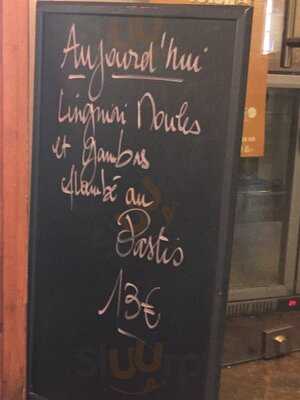 Aujourd'hui
Linguini Moules
et gambas
flambé au
Pastis
13€
sluurp